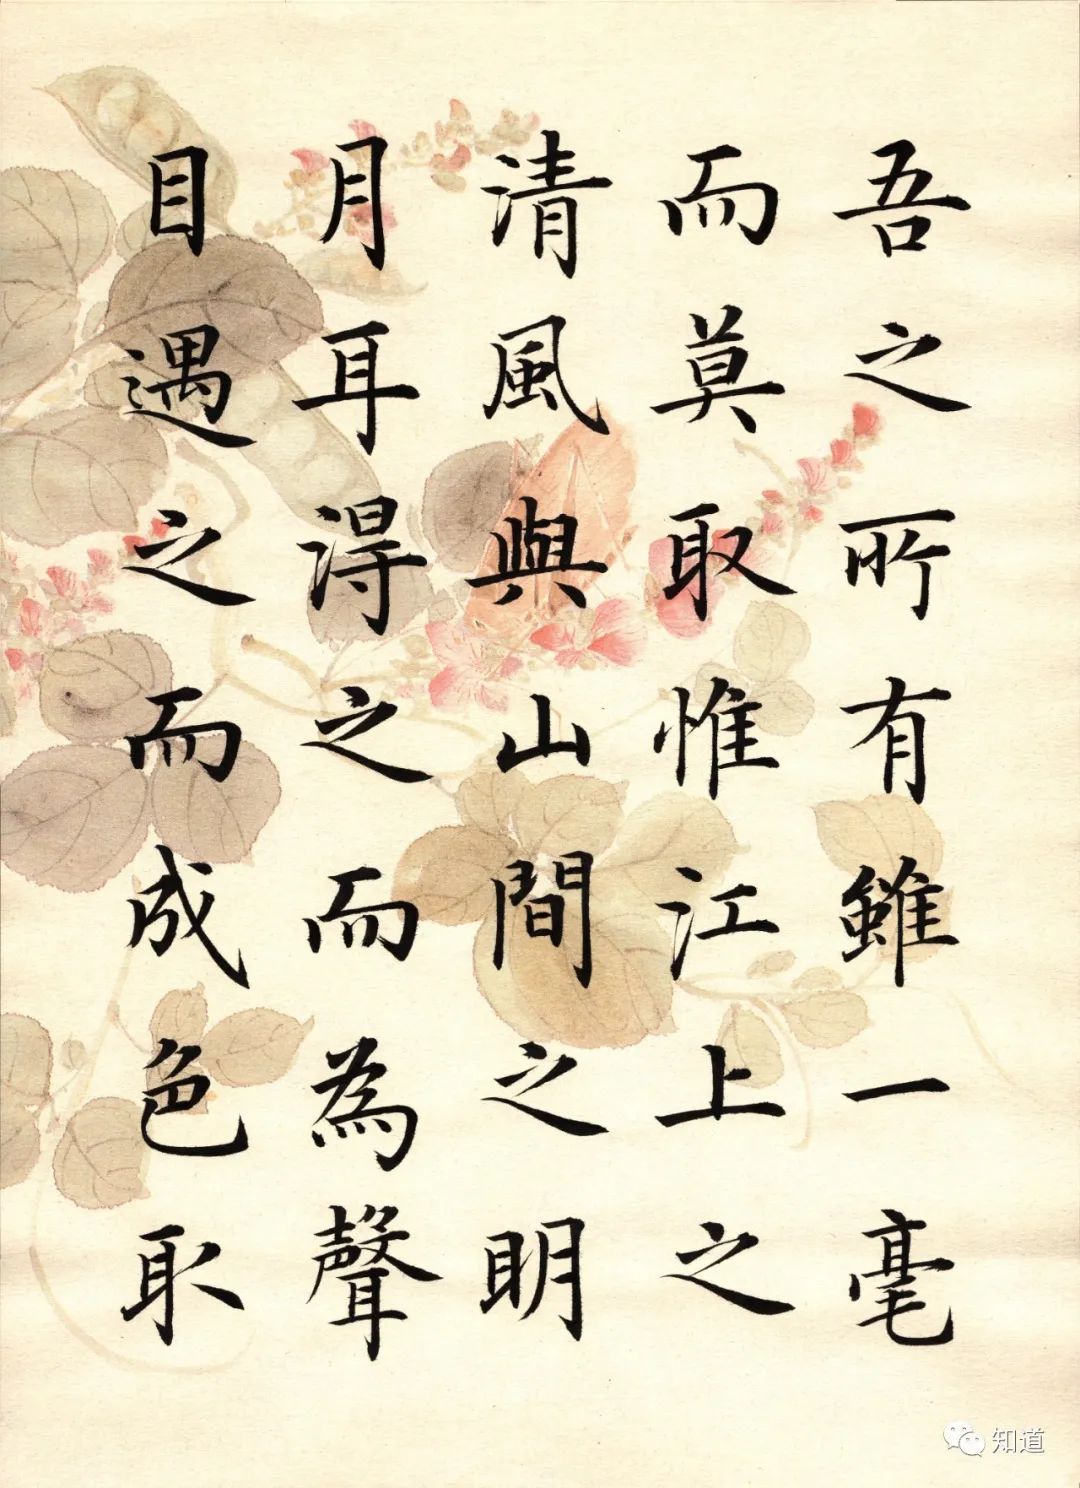 吾之所有雖一毫
而莫取惟江上之
清風與山間之明
月耳得之而為聲
目遇之而成色取
知道